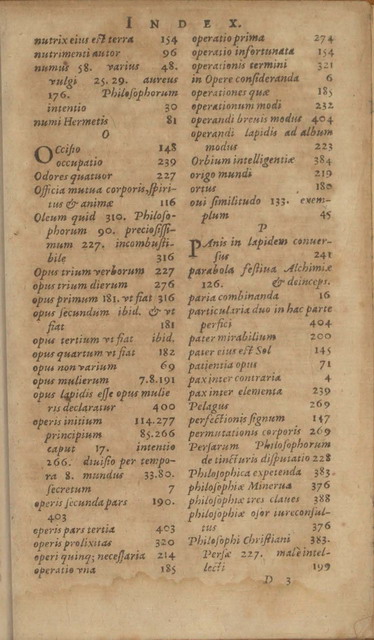 INDEX.
nutrix eius est terra 154
nutrimenti autor 96
numus 58. varius 48.
vulgi 25. 29. aureus
176. Philosophorum
intentio 30
numi Hermetis 81
O
OCcisio 148
occupatio 239
Odores quatuor 227
Officia mutua corporis, spiri-
tus & animæ 116
Oleum quid 310. Philoso-
phorum 90. preciosissi-
mum 227. incombusti-
bile 316
Opus trium verborum 227
opus trium dierum 276
opus primum 181. vt fiat 316
opus secundum ibid. & vt
fiat 181
opus tertium vt fiat ibid.
opus quartum vt fiat 182
opus non varium 69
opus mulierum 7.8.191
opus lapidis esse opus mulie
ris declaratur 400
operis initium 114.277
principium 85.266
caput 17. intentio
266. diuisio per tempo-
ra 8. mundus 33.80.
secretum 7
operis secunda pars 190.
403
operis pars tertia 403
operis prolixitas 320
operi quinq; necessaria 214
operatio vna 185
operatio prima 274
operatio infortunata 154
operationis termini 321
in Opere consideranda 6
operationes quæ 185
operationum modi 232
operandi breuis modus 404
operandi lapidis ad album
modus 223
Orbium intelligentiæ 384
origo mundi 219
ortus 180
oui similitudo 133. exem-
plum 45
P
PAnis in lapidem conuer-
sus 241
parabola festiua Alchimiæ
126. & deinceps.
paria combinanda 16
particularia duo in hac parte
perfici 404
pater mirabilium 200
pater eius est Sol 145
patientia opus 71
pax inter contraria 4
pax inter elementa 239
Pelagus 269
perfectionis signum 147
permutationis corporis 269
Persarum Philosophorum
de tincturis disputatio 228
Philosophica expetenda 383.
philosophiæ Minerua 376
philosophiæ tres claues 388
philosophiæ osor iureconsul-
tus 376
Philosophi Christiani 383.
Persæ 227. male intel-
lecti 199
D 3